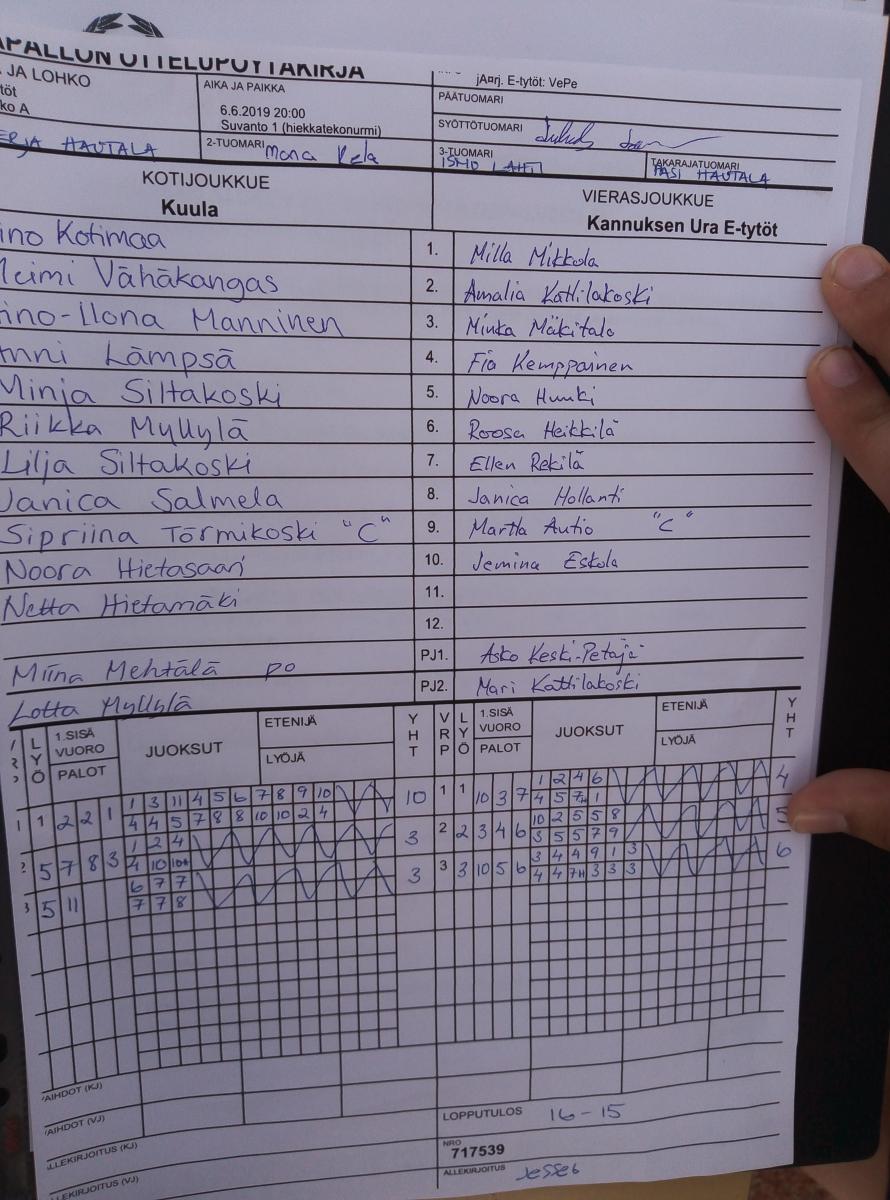 APALLON OTTELUPÖYTÄKIRJA
JA LOHKO
töt
ko A
AIKA JA PAIKKA
6.6.2019 20:00
Suvanto 1 (hiekkatekonurmi)
jA¤rj. E-tytöt: VePe
PÄÄTUOMARI
SYÖTTÖTUOMARI
ERJA HAUTALA
2-TUOMARI Mona Kela
3-TUOMARI ISMO LAHTI
TAKARAJATUOMARI PASI HAUTALA
KOTIJOUKKUE
Kuula
VIERASJOUKKUE
Kannuksen Ura E-tytöt
ino Kotimaa 1. Milla Mikkola
eimi Vähäkangas 2. Amalia Kattilakoski
ino-Ilona Manninen 3. Minka Mäkitalo
nni Lämpsä 4. Fia Kemppainen
Minja Siltakoski 5. Noora Huuki
Riikka Myllylä 6. Roosa Heikkilä
Lilja Siltakoski 7. Ellen Rekilä
Janica Salmela 8. Janica Hollanti
Sipriina Törmikoski "C" 9. Martta Autio "C"
Noora Hietasaari 10. Jemina Eskola
Netta Hietamäki 11.
12.
Miina Mehtälä PO PJ1. Asko Keski-Petäjä
Lotta Myllylä PJ2. Mari Kattilakoski
LYÖ 1.SISÄ VUORO PALOT JUOKSUT ETENIJÄ LYÖJÄ YHT VRP LYÖ 1.SISÄ VUORO PALOT JUOKSUT ETENIJÄ LYÖJÄ YHT
1 3 11 4 5 6 7 8 9 10 1 2 4 6
1 1 2 2 1 4 4 5 7 8 8 10 10 2 4 10 1 1 10 3 7 4 5 7H 1 4
1 2 4 10 2 5 5 8
2 5 7 8 3 4 10 10H 3 2 2 3 4 6 3 5 5 7 9 5
6 7 7 3 4 4 9 1 3
3 5 11 7 7 8 3 3 3 10 5 6 4 4 7H 3 3 3 6
AIHDOT (KJ)
AIHDOT (VJ)
LLEKIRJOITUS (KJ)
LLEKIRJOITUS (VJ)
LOPPUTULOS 16-15
NRO
717539
ALLEKIRJOITUS